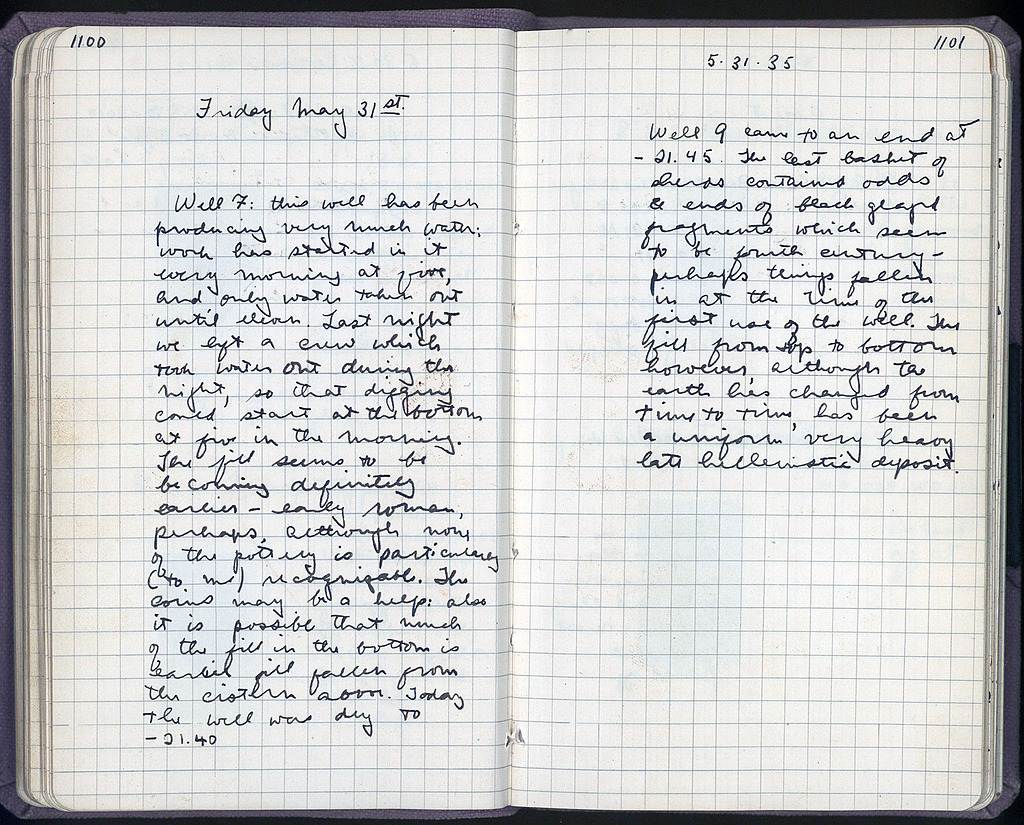 1100
Friday May 31st.
Well 7: this well has been
producing very much water:
work has started in it
every morning at five,
and only water taken out
until eleven. Last night
we left a crew which
took water out during the
night, so that digging
could start at the bottom
at five in the morning.
The fill seems to be
becoming definitely
earlier – early roman,
perhaps, although none
of the pottery is particularly
(to me) recognizable. The
coins may be a help: also
it is possible that much
of the fill in the bottom is
earlier fill fallen from
the cistern above. Today
the well was dug to
– 21.40
1101
5.31.35
Well 9 came to an end at
– 21.45. The last basket of
sherds contained odds
& ends of black glazed
fragments which seem
to be fourth century –
perhaps things fallen
in at the time of the
first use of the well. The
fill from top to bottom
however, although the
earth has changed from
time to time, has been
a uniform, very heavy
late hellenistic deposit.